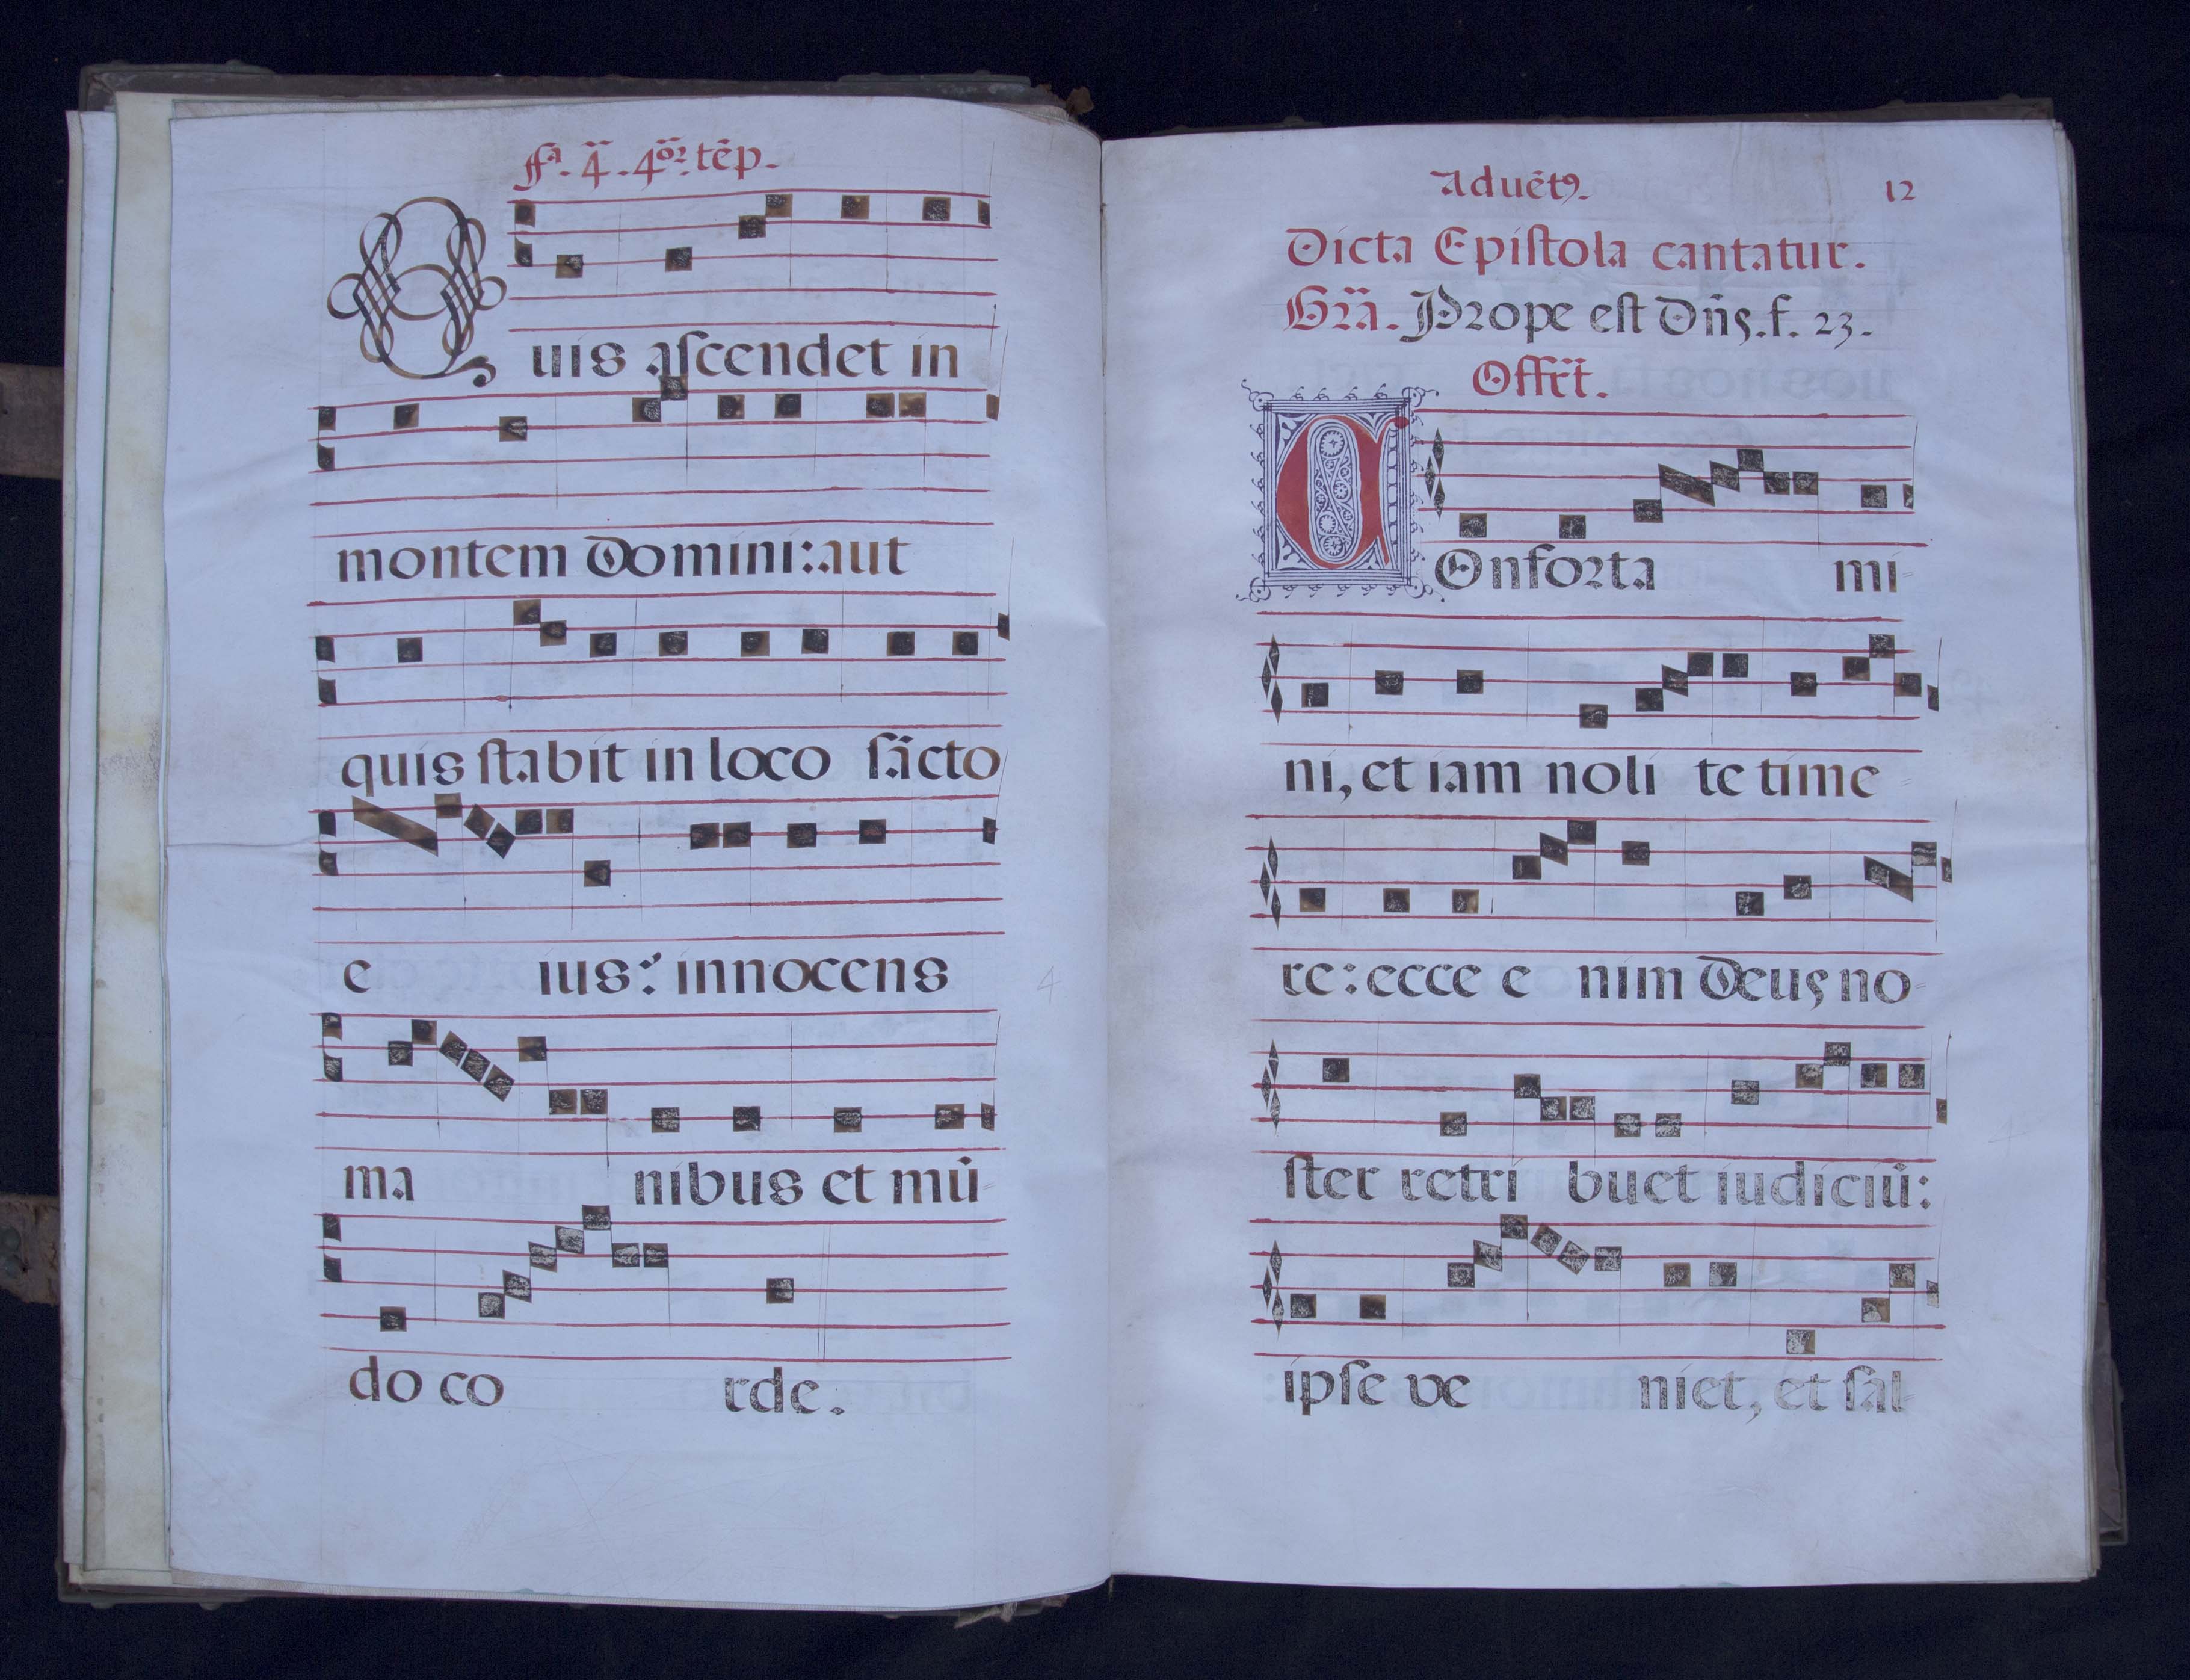 fſª. 4ª. 4ºʳ. tēp.
Quis aſcendet in
montem Domini: aut
quis ſtabit in loco ſācto
e ius: innocens
ma nibus et mū
do co rde.
Aduētꝰ. 12
Dicta Epiſtola cantatur.
Gr̄a. Prope eſt Dn̄s. f. 23.
Offr̄t.
COnforta mi
ni, et iam noli te time
re: ecce e nim Deus no
ſter retri buet iudiciū:
ipſe ve niet, et ſal